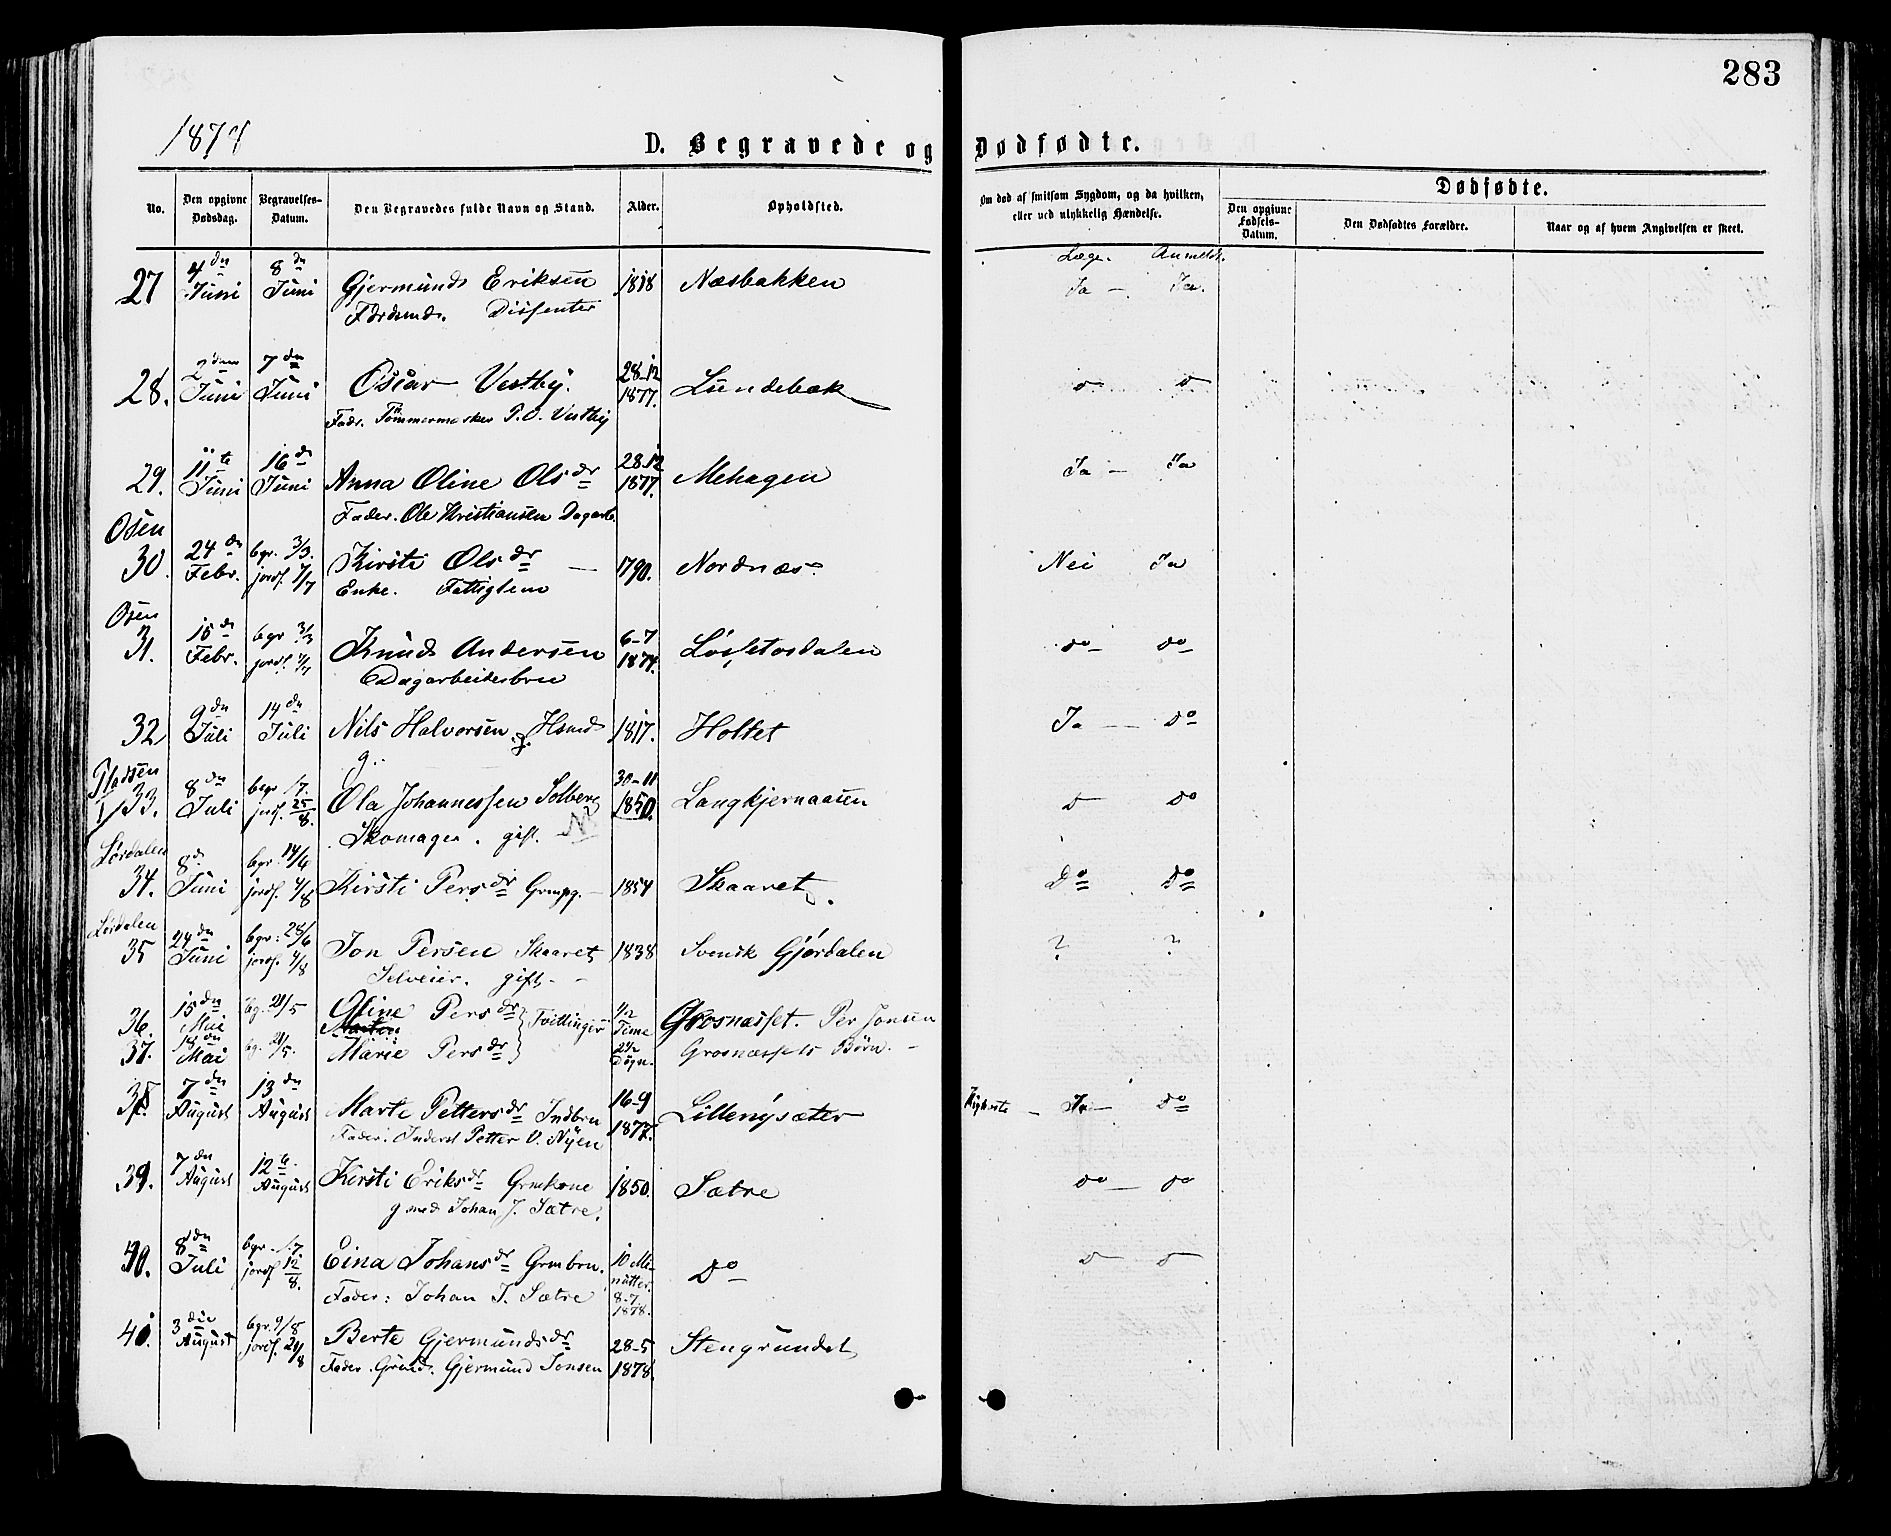 283
1878
D. Begravede og Dødfødte.
No.
Den opgivne Dødsdag.
Begravelses-Datum.
Den Begravedes fulde Navn og Stand.
Alder.
Opholdsted.
Om død af smitsom Sygdom, og da hvilken, eller ved ulykkelig Hændelse.
Dødfødte.
Den opgivne Fødsels-Datum.
Den Dødfødtes Forældre.
Naar og af hvem Angivelsen er skeet.
Læge. Anmeldt.
27 4de Juni 8de Juni Gjermund Eriksen 1818 Næsbakken Ja — Ja.
Fdrdsmd. Dissenter
28. 2den Juni 7de Juni Oscar Vestby. 28-12 1877. Lundebæk do do
Fader. Tømmermerker P. O. Vestby
29. 11te Juni 16de Juni Anna Oline Olsdr 28-12 1877. Mehagen Ja — Ja
Fader. Ole Kristiansen Dagarb.
Osen
30. 24de Febr. bgr. 3/3. jordf. 7/7 Kirsti Olsdr — 1790. Nordnæs Nei Ja
Enke. Fattiglem
Osen
31. 15de Febr. bgr 3/3 jordf. 7/7 Knud Andersen 6-7 1874. Løsetosdalen do do
Dagarbeidesbrn
32 9de Juli 14de Juli Nils Halvorsen, Hsmd 1817. Holtet Ja — Do
g..
Pladsen
33. 8de Juli bgr /7. jordf. 25/8. Ola Johannessen Solberg 30-11 1850. Langkjernaasen D Do
Skomager. gift.
Lørdalen
34. 8de Juni bgr. 14/6 jordf. 4/8 Kirsti Persdr Grmpg. — 1854 Skaaret Do Do
Lørdalen
35 24de Juni bgr: 28/6 jordf. 4/8 Jon Persen Skaaret 1838 Svensk Gjørdalen ? ?
Selveier. gift. -
36. 15de Mai bg. 21/5 Oline Persdr Tvillinger 1/2 Time Grosnæsset. Per Jonsen
37. 18de Mai bg. 21/5. Marie Persdr 2 1/2 Døgn. Grosnæssets Børn. —
38. 7de August 13de August Marte Pettersdr Indbrn 16-9 1877. Lillenysæter Kighoste — Ja — Do
Fader: Inderst Petter O. Nyen
39. 7de August 12te August Kirsti Eriksdr Grmkone 1850. Sætre do — do
g med Johan J. Sætre.
40. 8de Juli bgr. /7 jordf 12/8. Eina Johansdr Grmbrn. 10 Minutter. 8-7 1878. Do D do
Fader: Johan J. Sætre
41. 3die August bgr. 9/8 jordf. 24/8 Berte Gjermundsdr 28-5 1878. Stengrundet
Fader. Grmd. Gjermund Jonsen